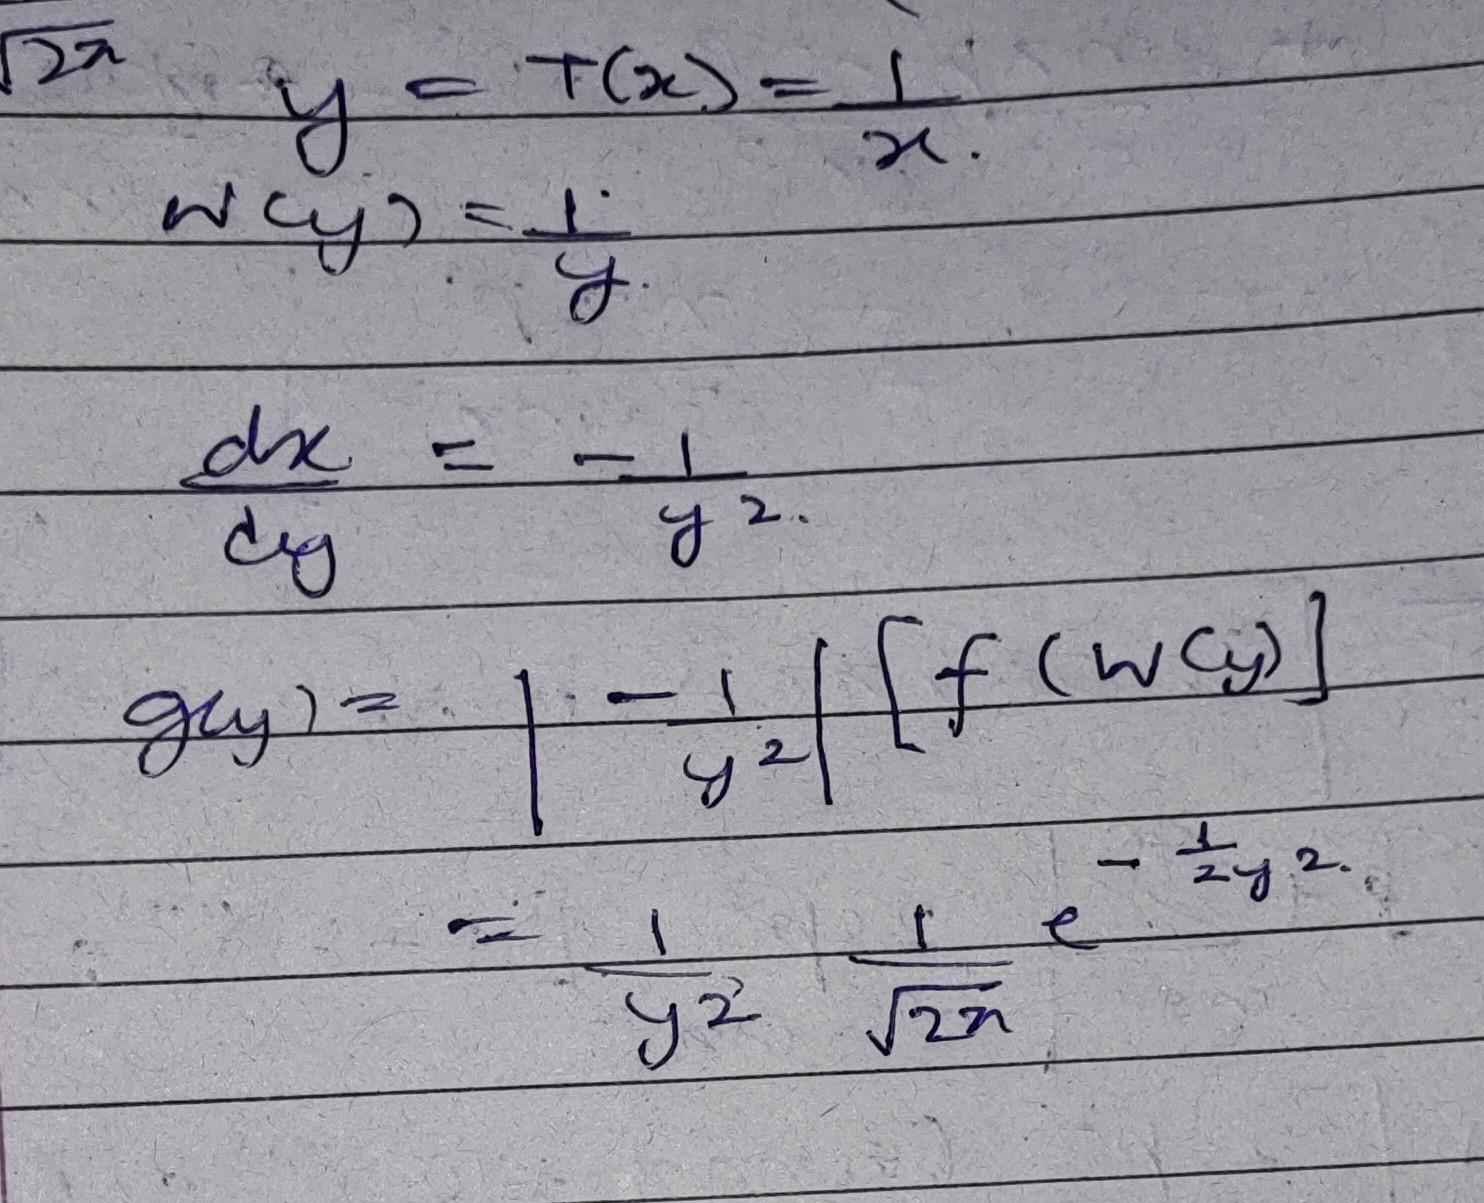 √2π
y = T(x) = 1/x.
w(y) = 1/y.
dx/dy = -1/y².
g(y) = |-1/y²| [f(w(y)]
= 1/y² 1/√2π e^(-1/2 y².)